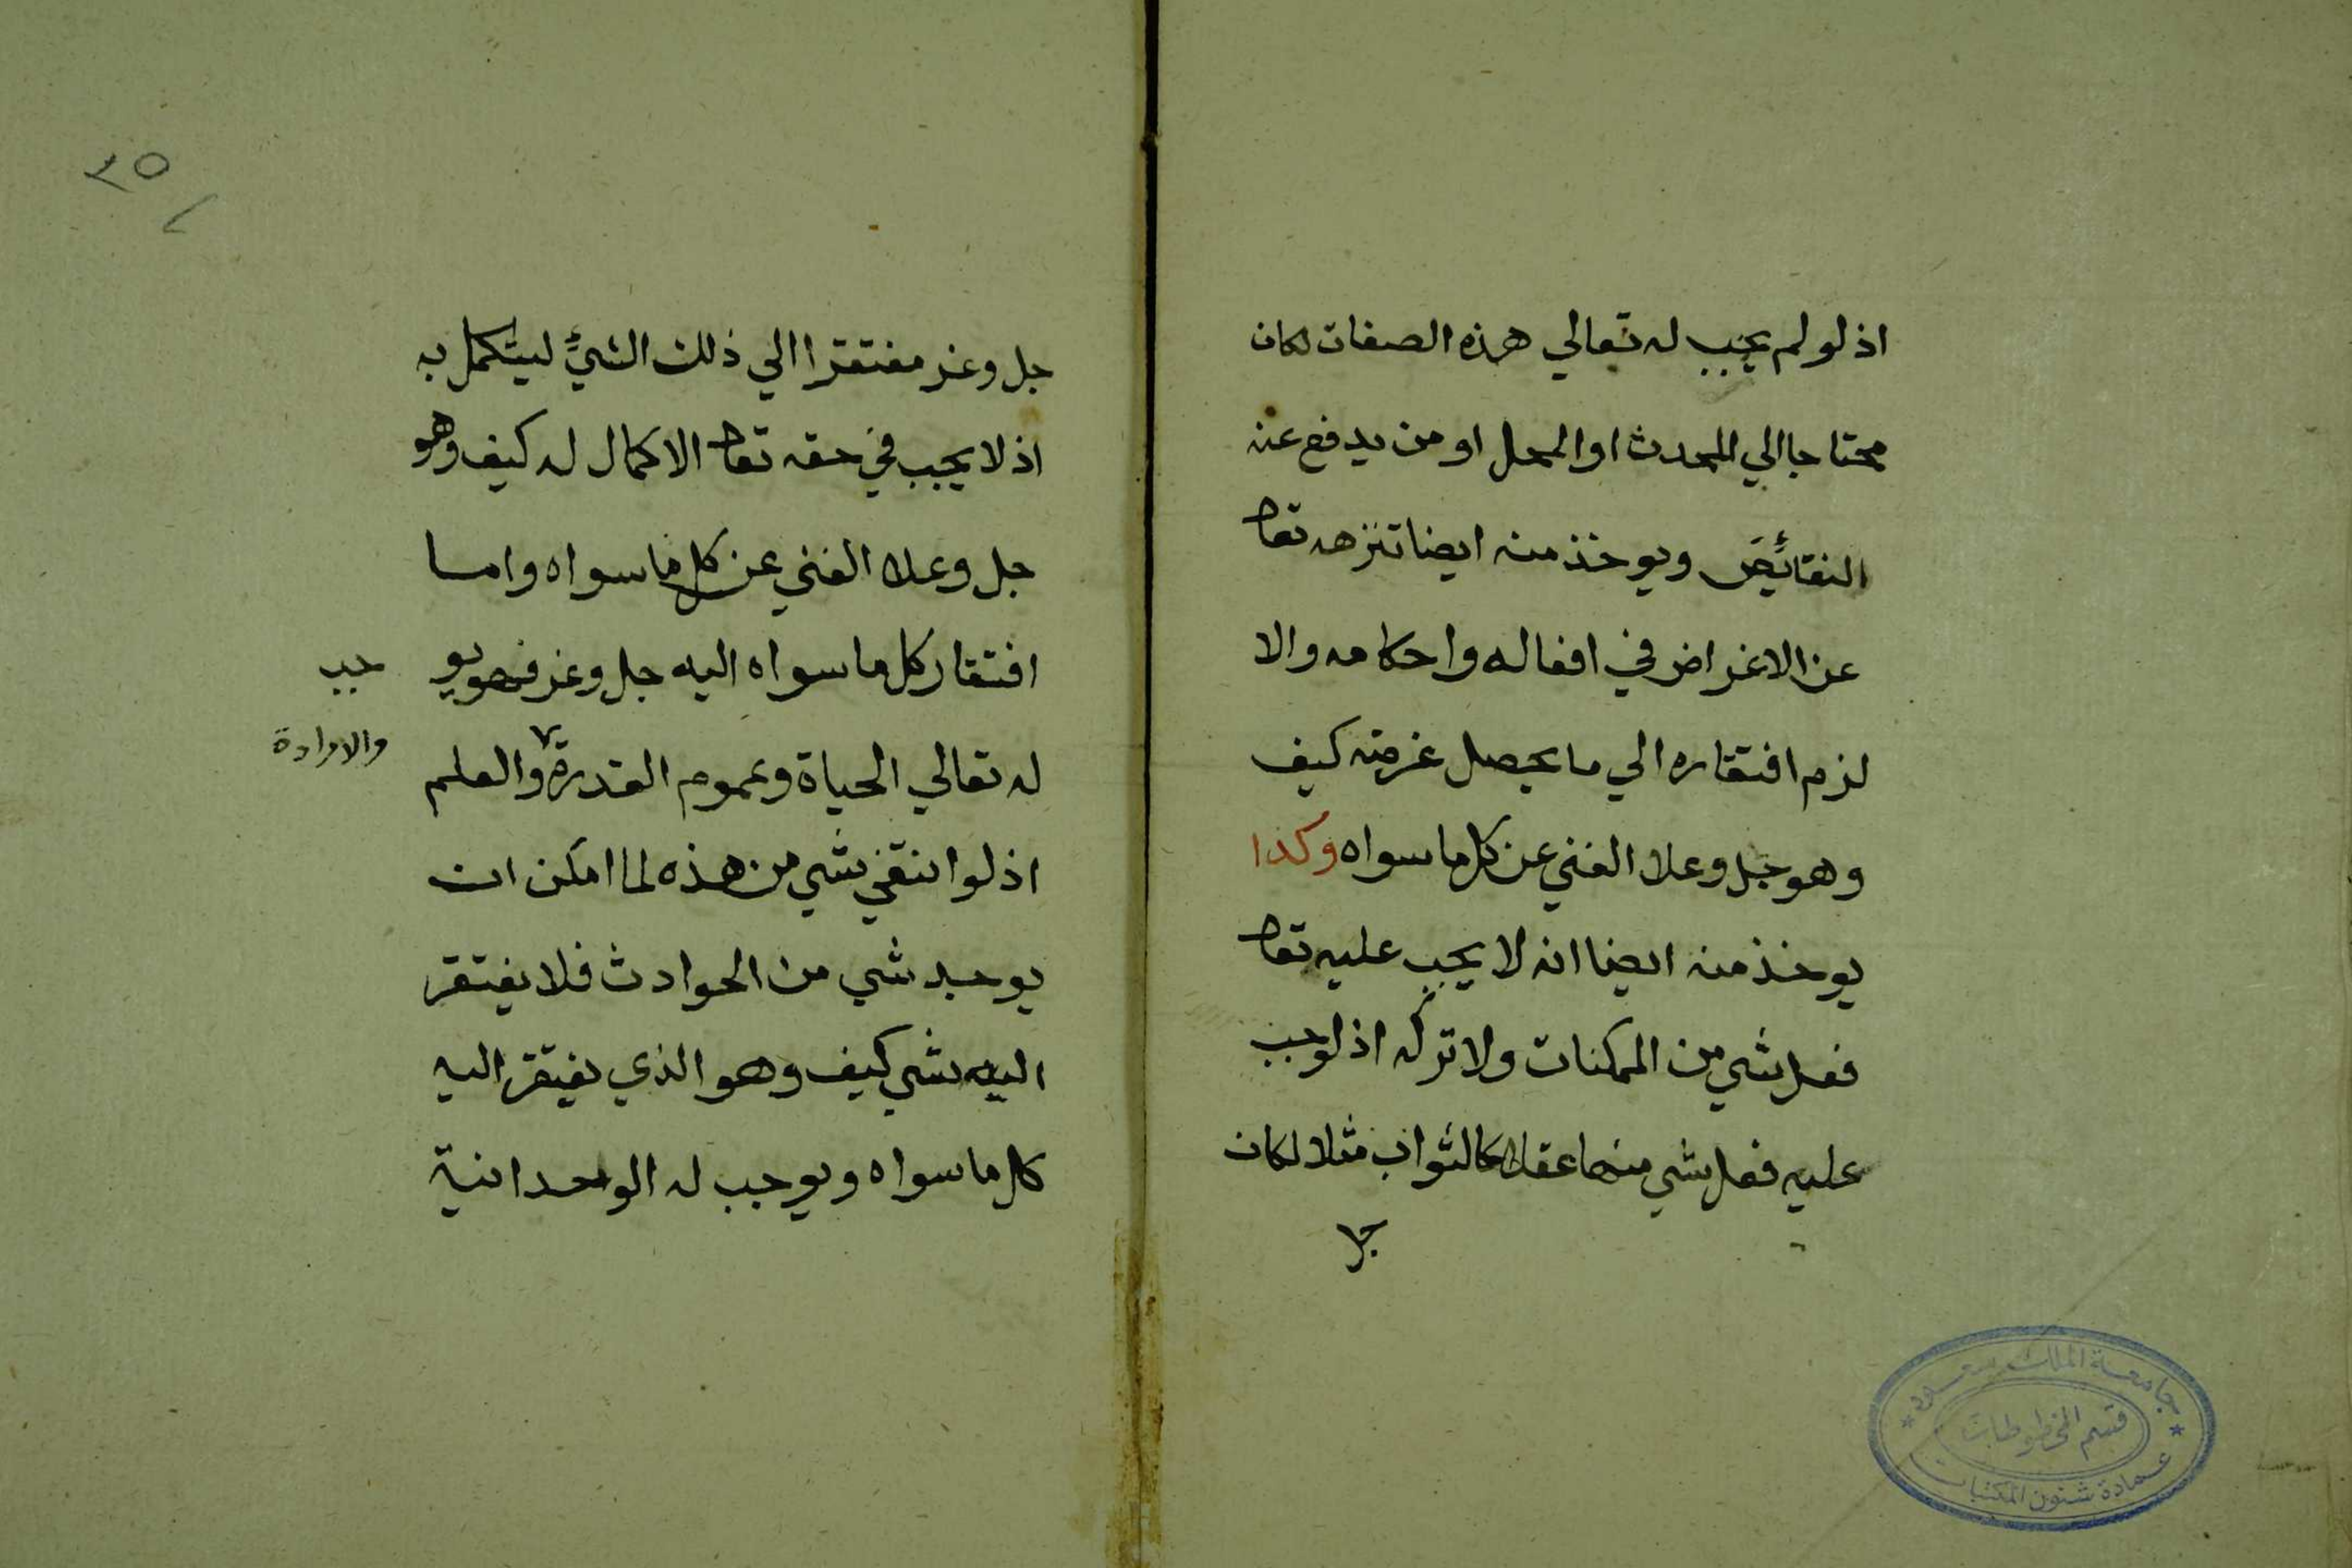 اذ لو لم يجب له تعالي هذه الصفات لكان
محتاجا الي المحدث او المحل او من يدفع عنه
النقائص ويوخذ منه ايضا تنزهه تعا
عن الاغراض في افعاله واحكامه والا
لزم افتقاره الي ما يحصل غرضه كيف
وهو جل وعلا الغني عن كل ما سواه وكذا
يوخذ منه ايضا انه لا يجب عليه تعا
فعل شي من الممكنات ولا تركه اذ لو وجب
عليه فعل شي منها عقلا كالثواب مثلا لكان
جل
٣٥
جل وعز مفتقرا الي ذلك الشيئ ليتكمل به
اذ لا يجب في حقه تعا الا كمال له كيف وهو
جل وعلا الغني عن كل ما سواه واما
افتقار كل ما سواه اليه جل وعز فهو يو جب
له تعالي الحياة وعموم القدرة والعلم
والارادة
اذ لو انتفي شي من هذه لما امكن ان
يوجد شي من الحوادث فلا يفتقر
اليه شي كيف وهو الذي يفتقر اليه
كل ما سواه ويوجب له الوحدانية
جامعة الملك سعود
قسم المخطوطات
عمادة شئون المكتبات